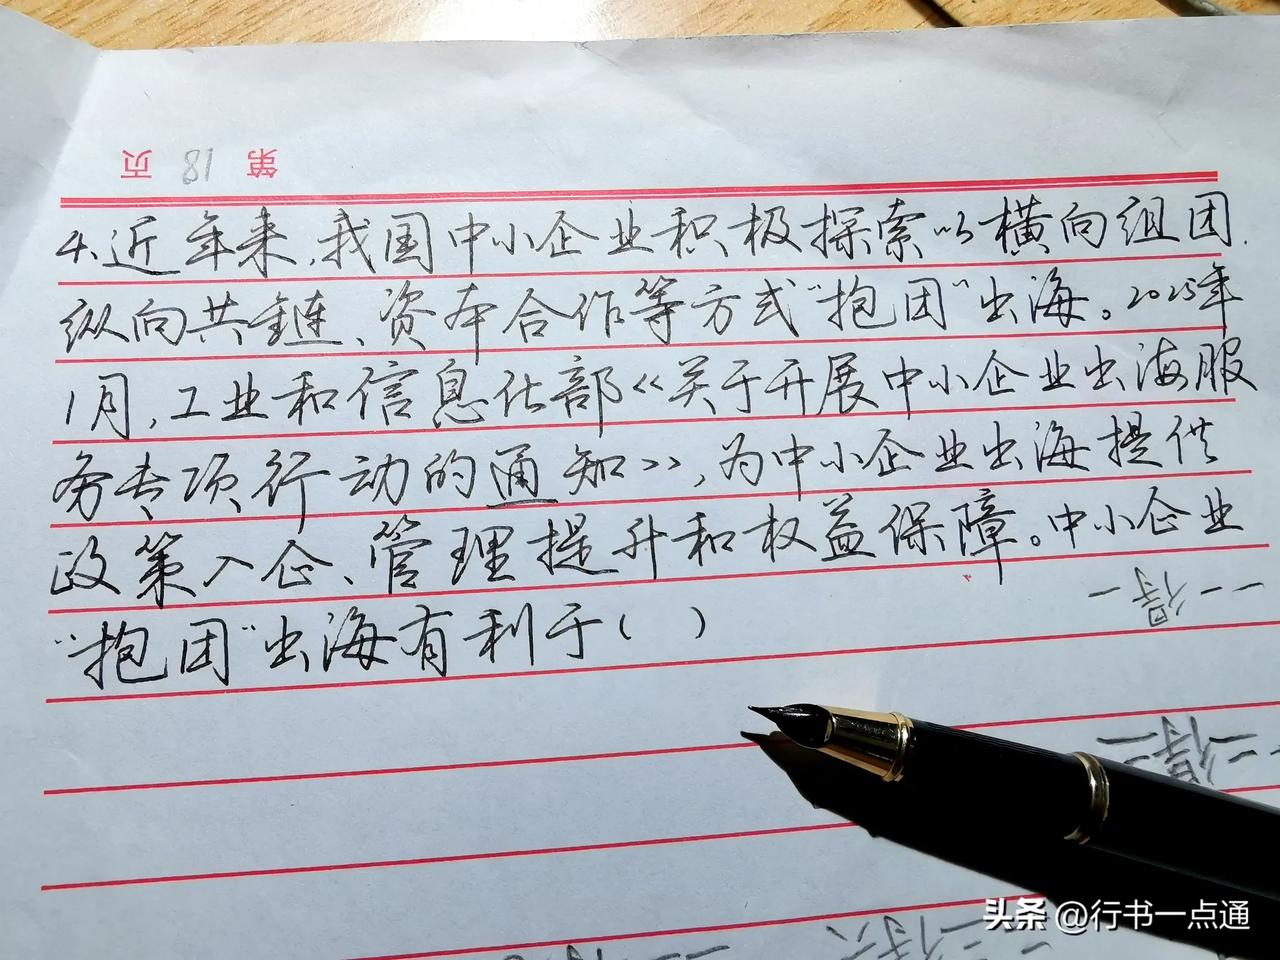 第 81 页
4.近年来,我国中小企业积极探索以横向组团、
纵向共链、资本合作等方式“抱团”出海。2025年
1月,工业和信息化部《关于开展中小企业出海服
务专项行动的通知》,为中小企业出海提供
政策入企、管理提升和权益保障。中小企业
“抱团”出海有利于( )
头条 @行书一点通